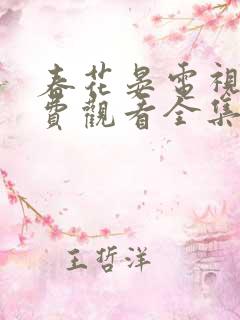 春花晏電視
費觀看全集
王哲洋